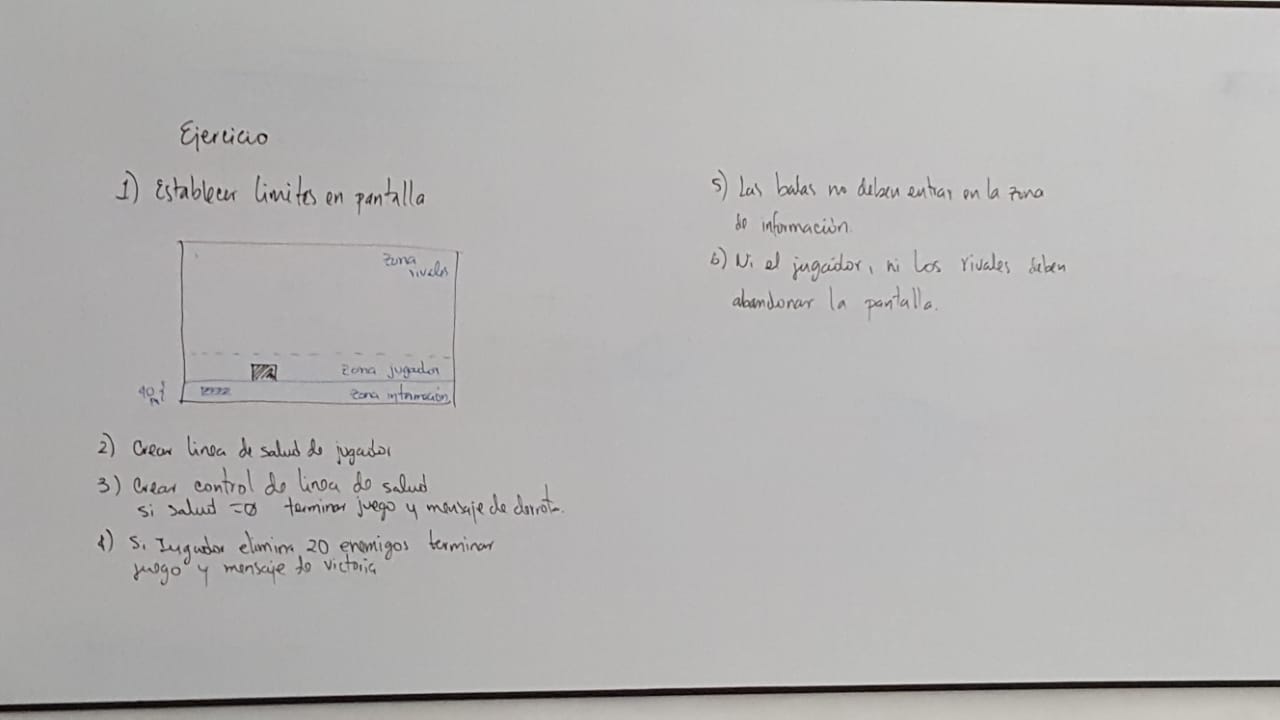 Ejercicio
1) Establecer limites en pantalla
zona
rivales
zona jugador
zona información
40
2) Crear linea de salud de jugador
3) Crear control de linea de salud
si salud = 0 terminar juego y mensaje de derrota.
4) Si Jugador elimina 20 enemigos terminar
juego y mensaje de victoria
5) Las balas no deben entrar en la zona
de información.
6) Ni el jugador, ni los rivales deben
abandonar la pantalla.